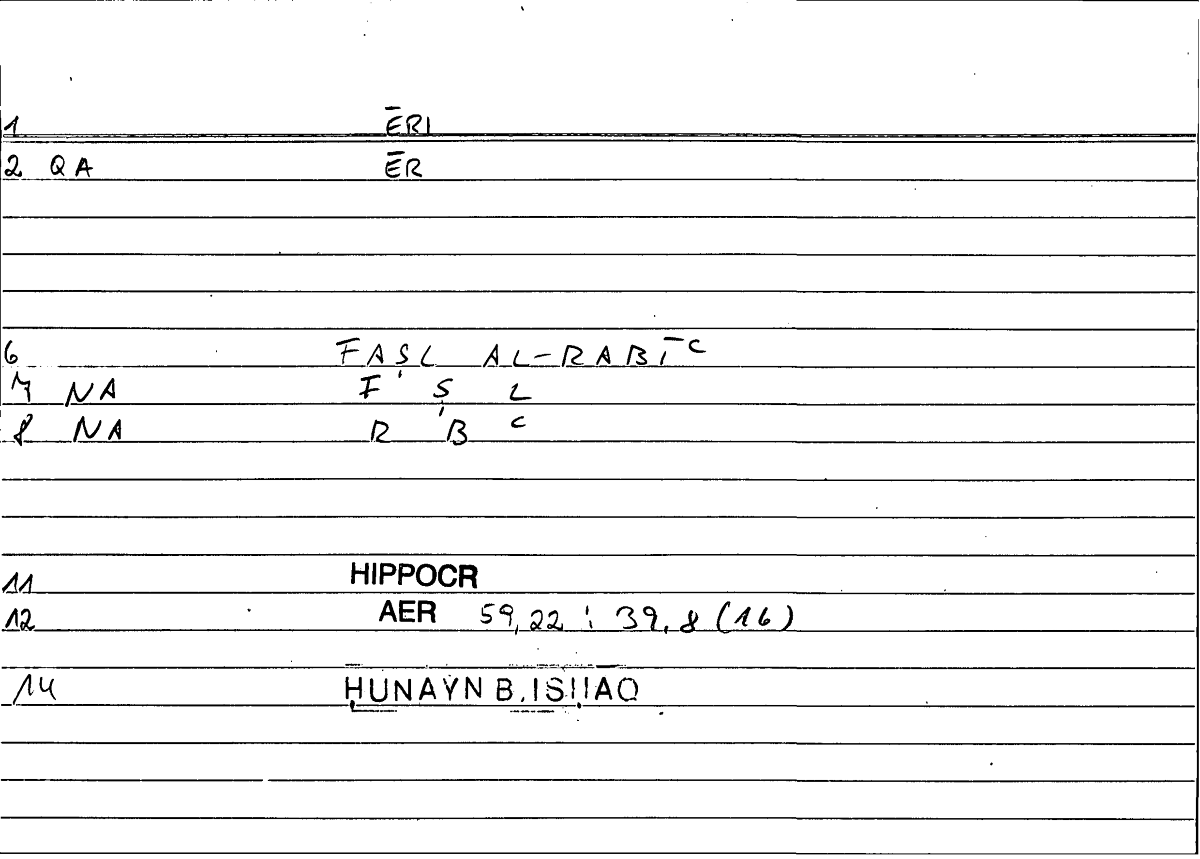 1 ĒRI
2 QA ĒR
6 FAṢL AL-RABĪʿ
7 NA F Ṣ L
8 NA R B ʿ
11 HIPPOCR
12 AER 59,22 : 39,8 (16)
14 ḤUNAYN B. ISḤĀQ